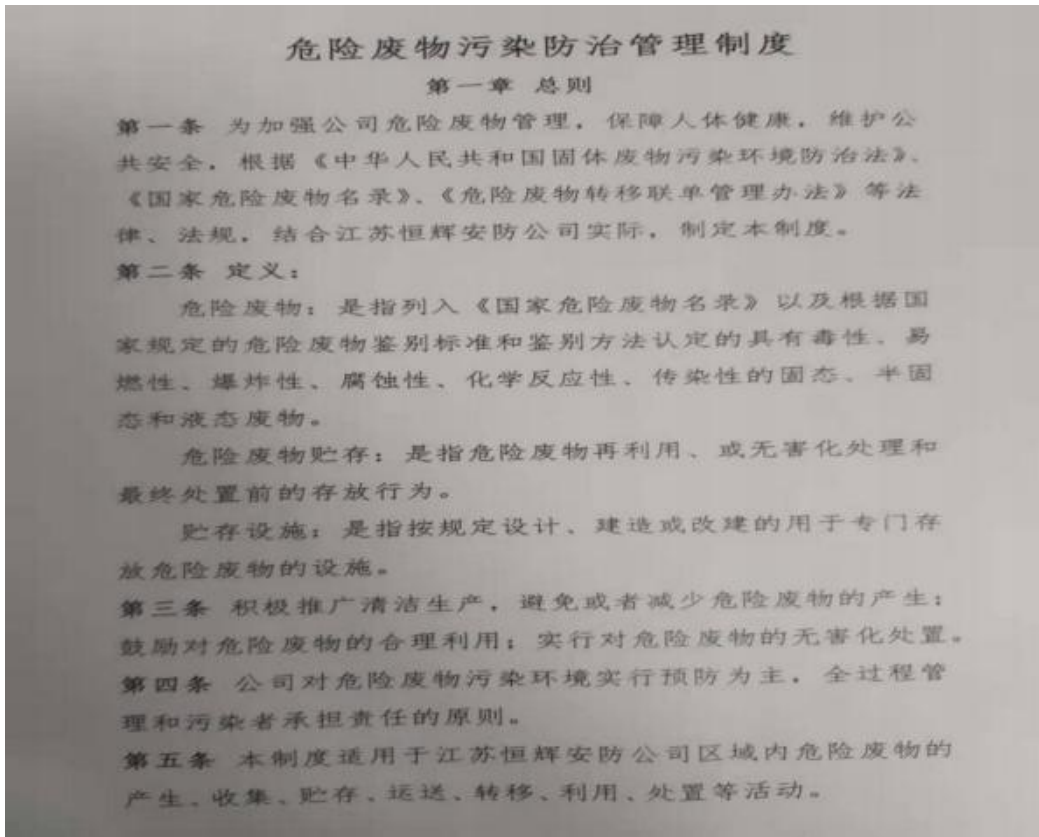 危险废物污染防治管理制度
第一章 总则
第一条 为加强公司危险废物管理，保障人体健康，维护公
共安全，根据《中华人民共和国固体废物污染环境防治法》、
《国家危险废物名录》、《危险废物转移联单管理办法》等法
律、法规，结合江苏恒辉安防公司实际，制定本制度。
第二条 定义：
危险废物：是指列入《国家危险废物名录》以及根据国
家规定的危险废物鉴别标准和鉴别方法认定的具有毒性、易
燃性、爆炸性、腐蚀性、化学反应性、传染性的固态、半固
态和液态废物。
危险废物贮存：是指危险废物再利用、或无害化处理和
最终处置前的存放行为。
贮存设施：是指按规定设计、建造或改建的用于专门存
放危险废物的设施。
第三条 积极推广清洁生产，避免或者减少危险废物的产生；
鼓励对危险废物的合理利用；实行对危险废物的无害化处置。
第四条 公司对危险废物污染环境实行预防为主，全过程管
理和污染者承担责任的原则。
第五条 本制度适用于江苏恒辉安防公司区域内危险废物的
产生、收集、贮存、运送、转移、利用、处置等活动。